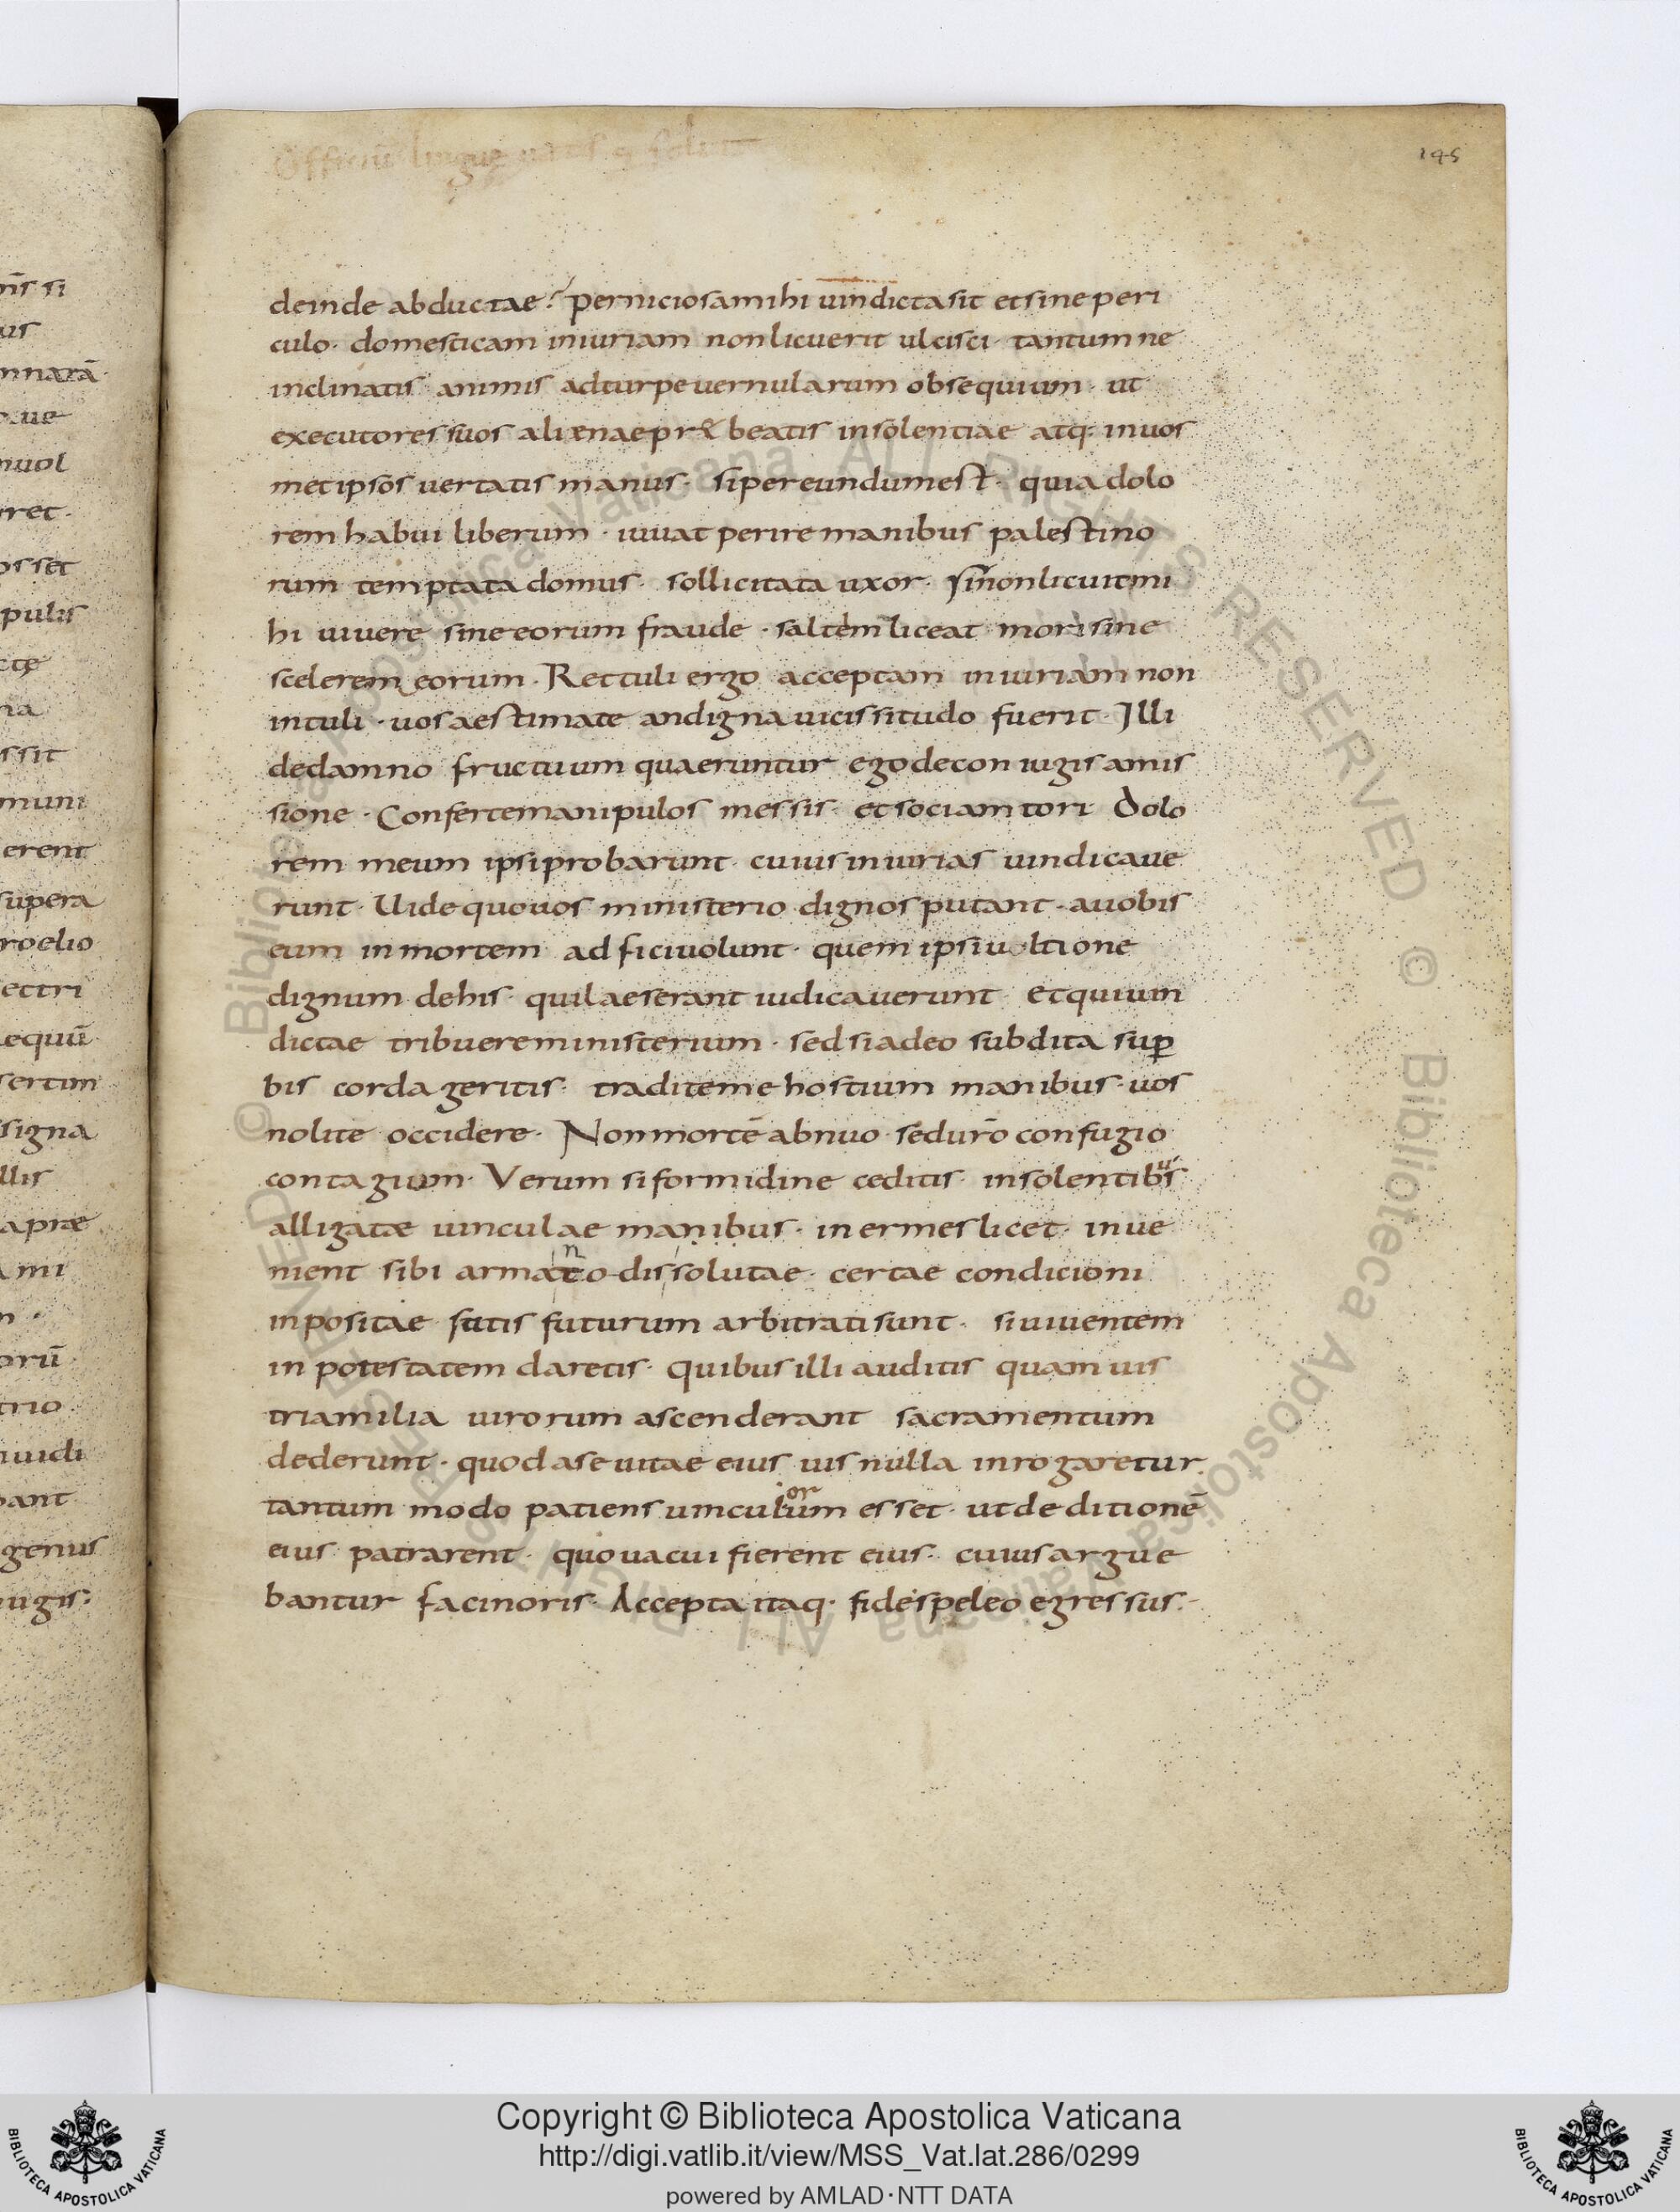 Officiu lingue
145
deinde abductae? perniciosa mihi vindicta sit et sine peri
culo· domesticam iniuriam non licuerit ulcisci· tantum ne
inclinatis animis ad turpe vernularum obsequium· ut
executores suos alienae pr&beatis insolentiae atq: in vos
met ipsos vertatis manus· si pereundum est· quia dolo
rem habui liberum· iuvat perire manibus palestino
rum temptata domus· sollicitata uxor· si non licuit mi
hi vivere sine eorum fraude· saltem liceat mori sine
scelerem eorum· Rettuli ergo acceptam iniuriam non
intuli· vos aestimate an digna vicissitudo fuerit· Illi
de damno fructuum quaeruntur ego de coniugis amis
sione· Conferte manipulos messis· et sociam tori Dolo
rem meum ipsi probarunt· cuius iniurias vindicave
runt· Vide quo vos ministerio dignos putant· a vobis
eum in mortem adfici volunt· quem ipsi ultione
dignum de his· qui laeserant iudicaverunt· et qui vin
dictae tribuere ministerium· sed si adeo subdita sup
bis corda geritis· tradite me hostium manibus· vos
nolite occidere· Non mortē abnuo· sed urō confugio
contagium· Verum si formidine ceditis· insolentibus
alligatae vinculae manibus· inermes licet· inve
nient sibi armato dissolutae· certae condicioni
inpositae satis futurum arbitrati sunt· si viventem
in potestatem daretis· Quibus illi auditis quamvis
tria milia virorum ascenderant sacramentum
dederunt· quod a se vitae eius vis nulla inrogaretur·
tantum modo patiens vinculorum esset· ut deditionē
eius patrarent· quo vacui fierent eius· cuius argue
bantur facinoris· Accepta itaq· fide speleo egressus·
nis si
us
nnarā·
ve
nvol
ret·
osset
pulis
ctę
ria
ssit
muni
erent
supera
roelio
ectri
equū
sertim
signa
llis
aprae
mi
orū
trio
nvidi
bant
genus
iugis:
© Biblioteca Apostolica Vaticana ALL RIGHTS RESERVED © Biblioteca Apostolica Vaticana ALL RIGHTS RESERVED
Copyright © Biblioteca Apostolica Vaticana
http://digi.vatlib.it/view/MSS_Vat.lat.286/0299
powered by AMLAD·NTT DATA
BIBLIOTECA APOSTOLICA VATICANA
BIBLIOTECA APOSTOLICA VATICANA